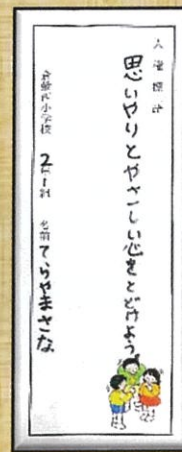 人権標語
思いやりとやさしい心をとどけよう
小学校 2年1組 名前 てらやまさな